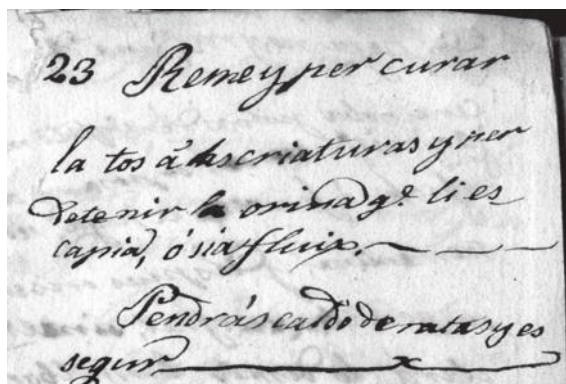 23 Remey per curar
la tos á las criaturas y per
detenir la orina q.e li es
capia, ó sia fluix.
Pendrás caldo de ratas y es
segur